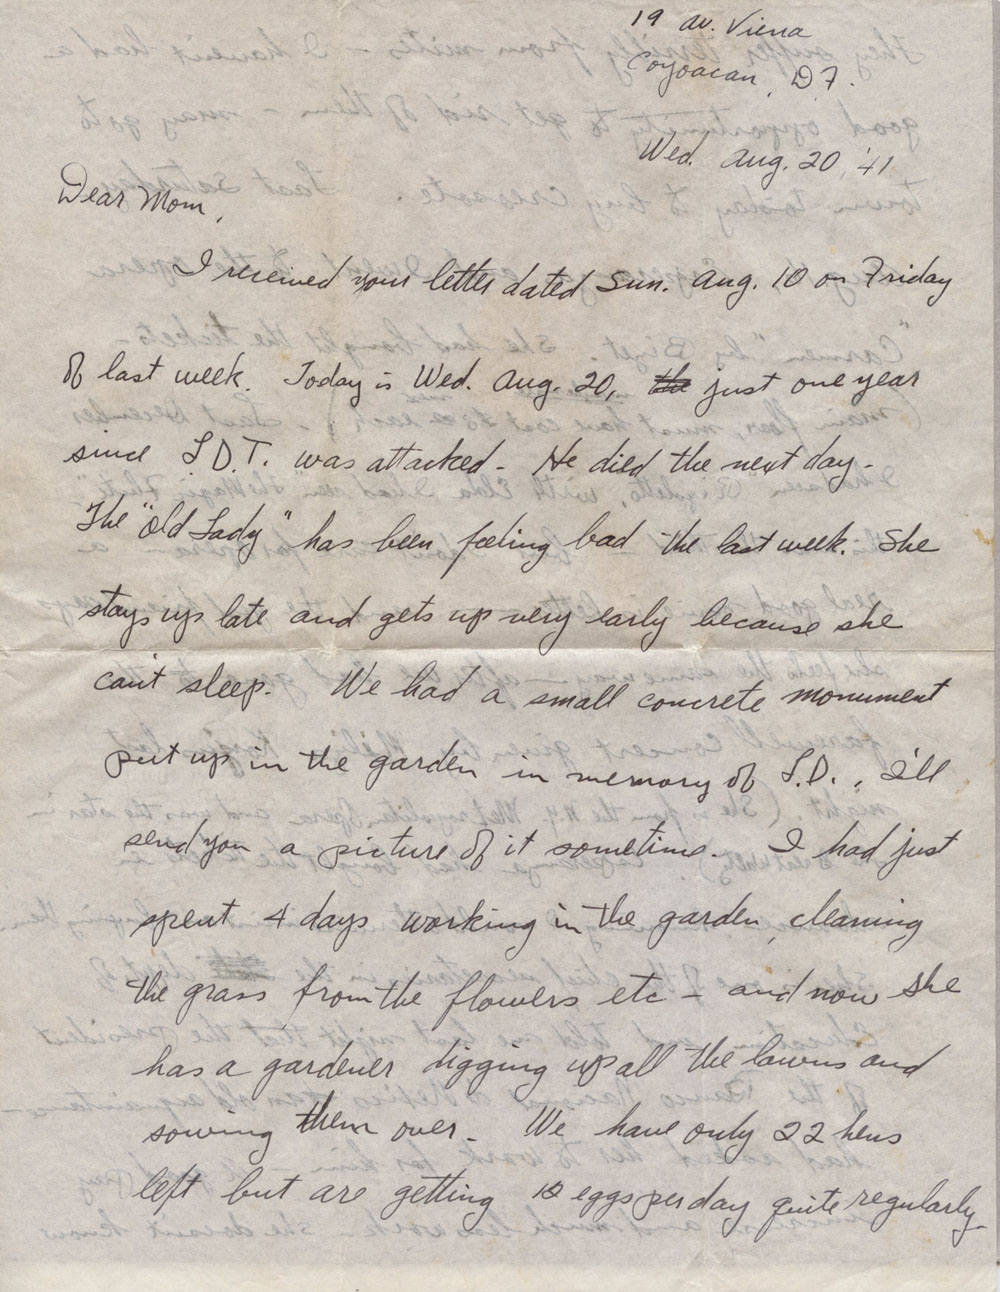 19 Av. Viena
Coyoacan, D.F.
Wed. Aug. 20, '41
Dear Mom,
I received your letter dated Sun. Aug. 10 on Friday
of last week. Today is Wed. Aug. 20, the just one year
since L.D.T. was attacked - He died the next day -
The "Old Lady" has been feeling bad the last week. She
stays up late and gets up very early because she
can't sleep. We had a small concrete monument
put up in the garden in memory of L.D., I'll
send you a picture of it sometime. I had just
spent 4 days working in the garden, cleaning
the grass from the flowers etc - and now she
has a gardener digging up all the lawns and
sowing them over - We have only 22 hens
left but are getting eggs per day quite regularly